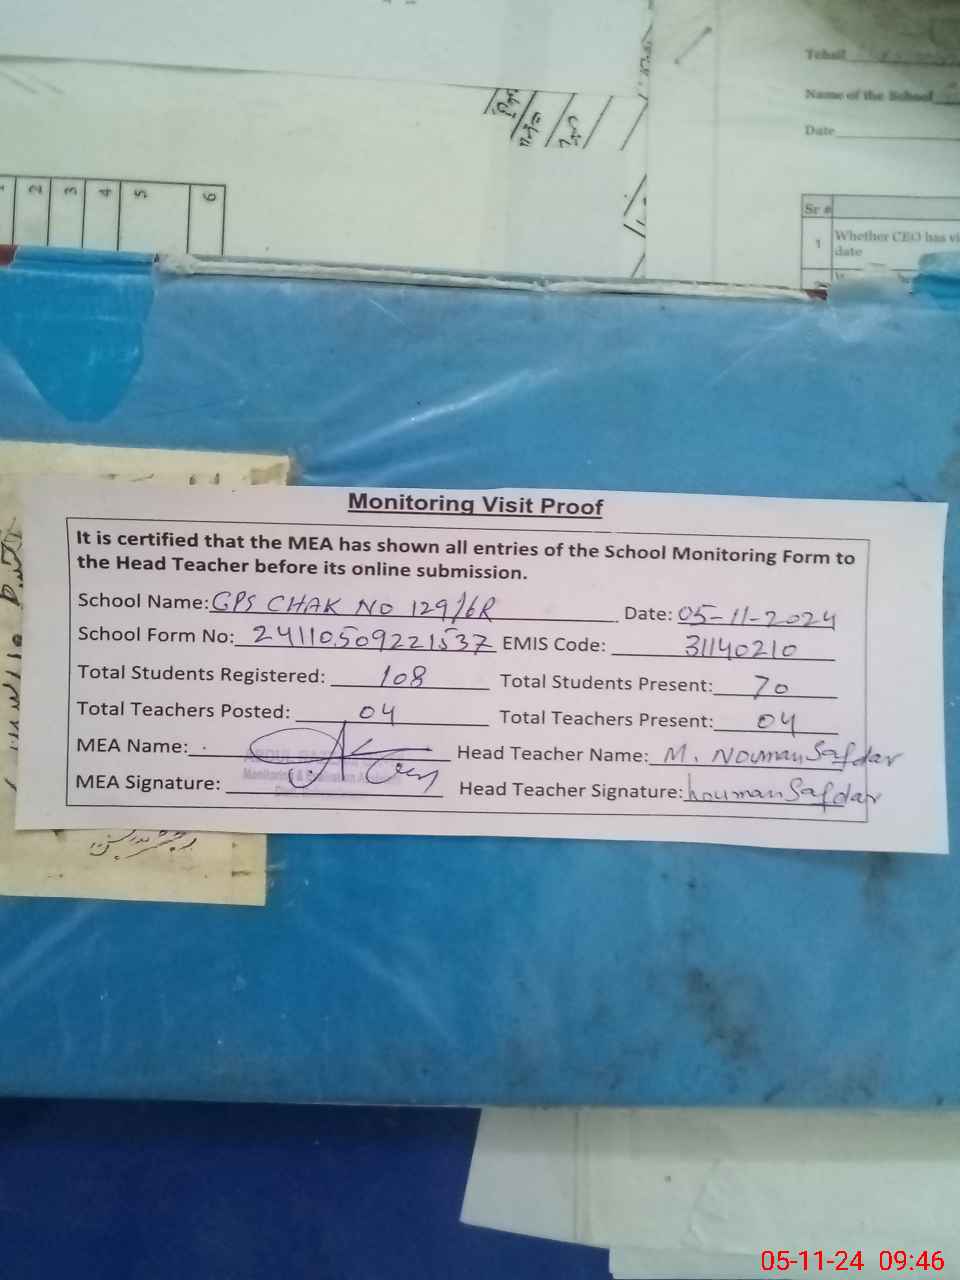 Tehsil
Name of the School
Date
1 2 3 4 5 6
Sr #
1 Whether CEO has vi
date
Monitoring Visit Proof
It is certified that the MEA has shown all entries of the School Monitoring Form to
the Head Teacher before its online submission.
School Name: GPS CHAK NO 129/6R Date: 05-11-2024
School Form No: 24110509221537 EMIS Code: 31140210
Total Students Registered: 108 Total Students Present: 70
Total Teachers Posted: 04 Total Teachers Present: 04
MEA Name: Head Teacher Name: M. Nouman Safdar
MEA Signature: Head Teacher Signature: nouman Safdar
05-11-24 09:46